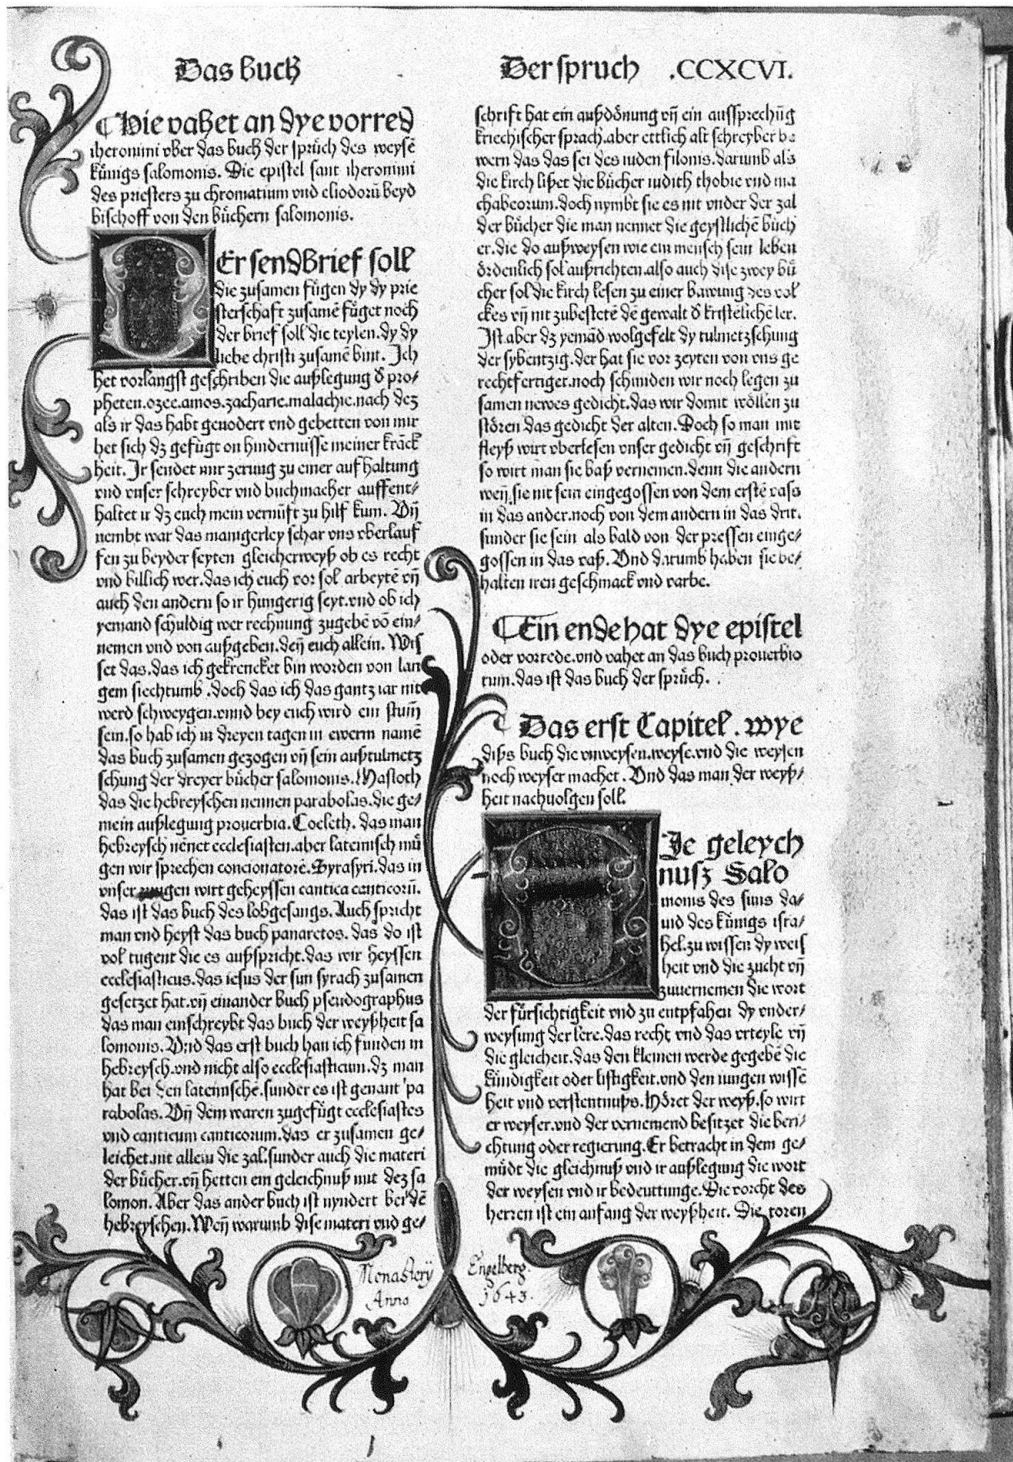 Das buch
Der spruch .CCXCVI.
¶Hie vahet an dye vorred
iheronimi vber das buch der sprüch des weysē
künigs salomonis. Die epistel sant iheronimi
des priesters zu chromatium vnd eliodorū beyd
bischoff von den büchern salomonis.
DEr sendbrief soll
die zusamen fügen dy dy prie
sterschaft zusamē füget noch
der brief soll die teylen. dy dy
liebe christi zusamē bint. Ich
het vorlangst geschriben die außlegung d̓ pro⸗
pheten. ozee. amos. zacharie. malachie. nach dez
als ir das habt geuodert vnd gebetten von mir
het sich dz gefügt on hindernusse meiner krāck
heit. Ir sendet mir zerung zu einer aufhaltung
vnd vnser schreyber vnd buchmacher auffent⸗
haltet ir dz euch mein vernūft zu hilf kum. Vn̄
nembt war das manigerley schar vns vberlauf
fen zu beyder seyten gleicherweyß ob es recht
vnd billich wer. das ich euch vor sol arbeytē vn̄
auch den andern so ir hungerig seyt. vnd ob ich
yemand schuldig wer rechnung zugebē vō ein⸗
nemen vnd von außgeben. den̄ euch allein. Wis
set das. das ich gekrencket bin worden von lan
gem siechtumb. doch das ich das gantz iar nit
werd schweygen. vnnd bey euch wird ein stum̄
sein. so hab ich in dreyen tagen in ewerm namē
das buch zusamen gezogen vn̄ sein außtulmetz
schung der dreyer bücher salomonis. Masloth
das die hebreyschen nennen parabolas. die ge⸗
mein außlegung prouerbia. Coeleth. das man
hebreysch nēnet ecclesiasten. aber lateinisch mü
gen wir sprechen concionatorē. Syrasyri. das in
vnser zungen wirt geheyssen cantica canticorū.
das ist das buch des lobgesangs. Auch spricht
man vnd heyst das buch panaretos. das do ist
vol tugent die es außspricht. das wir heyssen
ecclesiasticus. das iesus der sun syrach zusamen
gesetzet hat. vn̄ einander buch pseudographus
das man einschreybt das buch der weyßheit sa
lomonis. Vnd das erst buch han ich funden in
hebreysch. vnd nicht also ecclesiasticum. dz man
hat bei den lateinischē. sunder es ist genant pa
rabolas. Vn̄ dem waren zugefügt ecclesiastes
vnd canticum canticorum. das er zusamen ge⸗
leichet. nit allein die zal. sunder auch die materi
der bücher. vn̄ hetten ein geleichnuß mit dez sa
lomon. Aber das ander buch ist nyndert bei dē
hebreyschen. Wen̄ warumb dise materi vnd ge⸗
schrift hat ein außdönung vn̄ ein aussprechūg
kriechischer sprach. aber ettlich alt schreyber be
wern das das sei des iuden filonis. darumb als
die kirch lißet die bücher iudith thobie vnd ma
chabeorum. doch nymbt sie es nit vnder der zal
der bücher die man nennet die geystlichē büch
er. die do außweysen wie ein mensch sein leben
ördenlich sol außrichten. also auch dise zwey bü
cher sol die kirch lesen zu einer bawung des vol
ckes vn̄ nit zubestetē dē gewalt d̓ kristēliche ler.
Ist aber dz yemād wolgefelt dy tulmetzschung
der sybentzig. der hat sie vor zeyten von vns ge
rechtfertiget. noch schmiden wir noch legen zu
samen newes gedicht. das wir domit wöllen zu
stören das gedicht der alten. Doch so man mit
fleyß wirt vberlesen vnser gedicht vn̄ geschrift
so wirt man sie baß vernemen. denn die andern
wen̄ sie nit sein eingegossen von dem erstē vass
in das ander. noch von dem andern in das drit.
sunder sie sein als bald von der pressen einge⸗
gossen in das vaß. Vnd darumb haben sie be⸗
halten iren geschmack vnd varbe.
¶Ein ende hat dye epistel
oder vorrede. vnd vahet an das buch prouerbio
rum. das ist das buch der sprüch.
¶Das erst Capitel. wye
diß buch die vnweysen. weyse. vnd die weysen
noch weyser machet. Vnd das man der weyß⸗
heit nachuolgen soll.
Je geleych
nusz Salo
monis des suns da⸗
uid des künigs isra⸗
hel. zu wissen dy weis
heit vnd die zucht vn̄
zuuernemen die wort
der fürsichtigkeit vnd zu entpfahen dy vnder⸗
weysung der lere. das recht vnd das vrteyle vn̄
die gleicheit. das den kleinen werde gegebē die
kündigkeit oder listigkeit. vnd den iungen wissē
heit vnd verstentnuß. Höret der weyß. so wirt
er weyser. vnd der vernemend besitzet die beri⸗
chtung oder regierung. Er betracht in dem ge⸗
müdt die gleichnuß vnd ir außlegung die wort
der weysen vnd ir bedeuttunge. Die vorcht des
herren ist ein anfang der weyßheit. Die toren
Monasterÿ Engelberg.
Anno 1643.